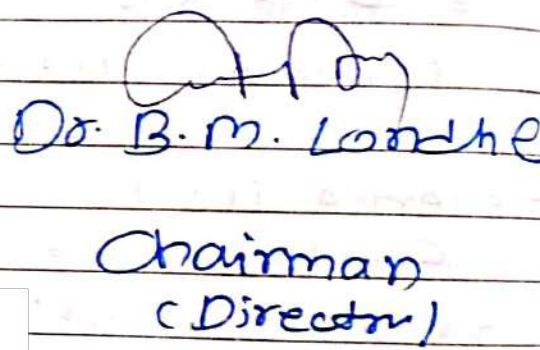 Dr. B.M. Londhe
Chairman
(Director)